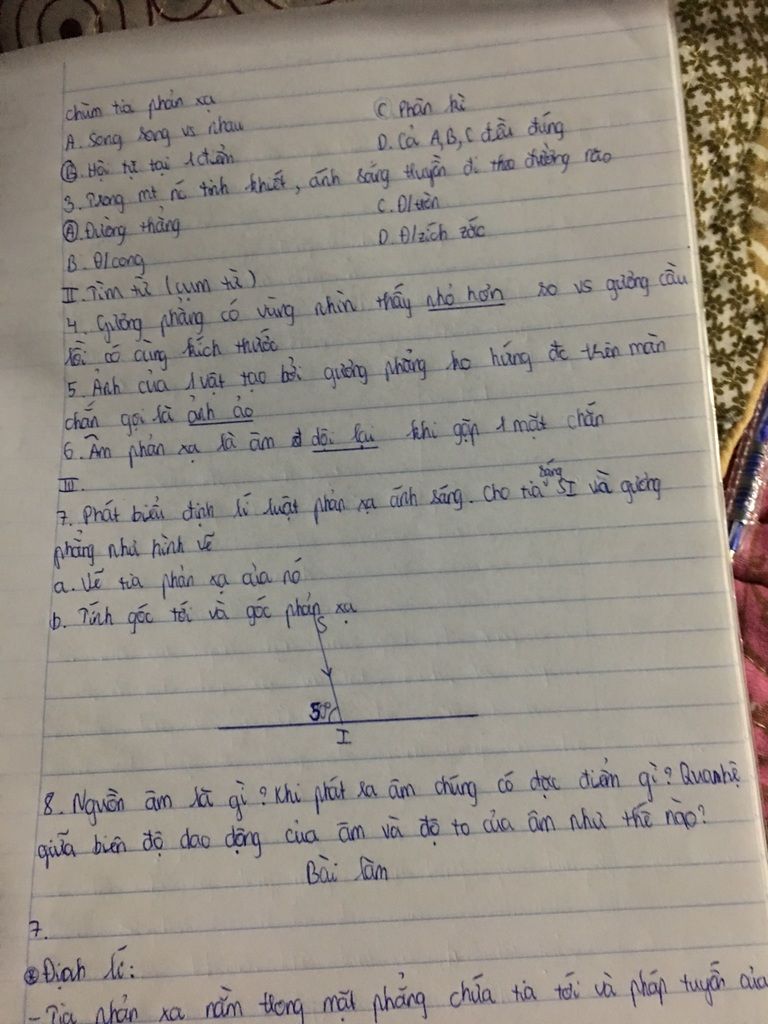 chùm tia phản xạ
A. Song song vs nhau
C. Phân kì
B. Hội tụ tại 1 điểm
D. Cả A, B, C đều đúng
3. Trong mt nc tinh khiết, ánh sáng truyền đi theo đường nào
A. Đường thẳng
C. Đ/tròn
B. Đ/cong
D. Đ/zích zắc
II. Tìm từ (cụm từ)
4. Gương phẳng có vùng nhìn thấy nhỏ hơn so vs gương cầu
lồi có cùng kích thước
5. Ảnh của 1 vật tạo bởi gương phẳng ko hứng đc trên màn
chắn gọi là ảnh ảo
6. Âm phản xạ là âm dội lại khi gặp 1 mặt chắn
III.
7. Phát biểu định lí luật phản xạ ánh sáng. Cho tia sáng SI và gương
phẳng như hình vẽ
a. Vẽ tia phản xạ của nó
b. Tính góc tới và góc phản xạ
S
50°
I
8. Nguồn âm là gì? Khi phát ra âm chúng có đặc điểm gì? Quan hệ
giữa biên độ dao động của âm và độ to của âm như thế nào?
Bài làm
7.
Định lí:
- Tia phản xạ nằm trong mặt phẳng chứa tia tới và pháp tuyến của